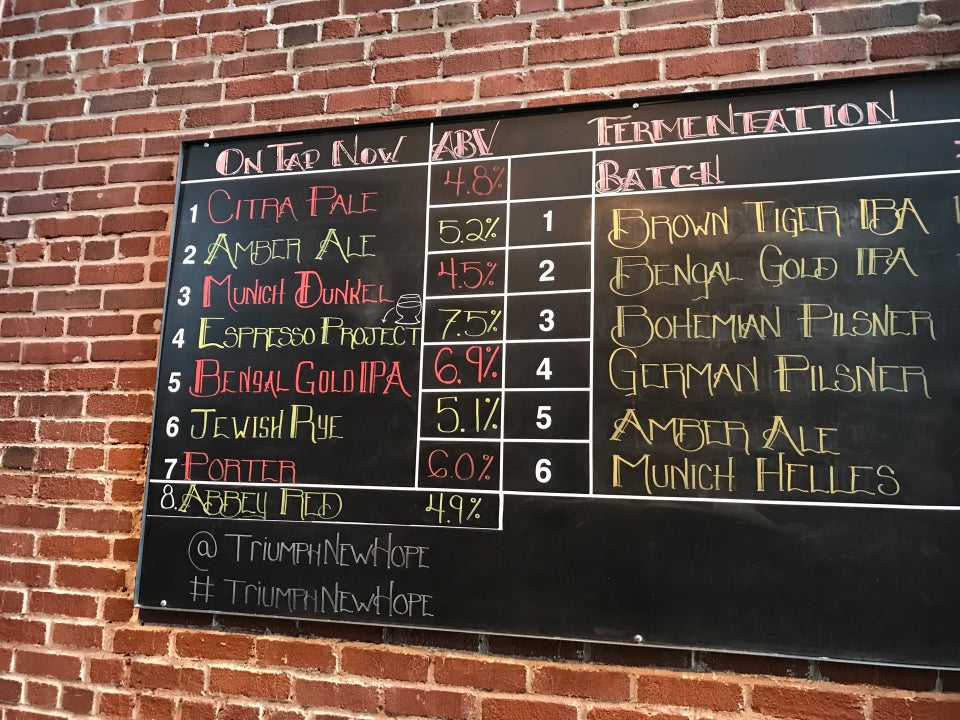 On Tap Now ABV
1 Citra Pale 4.8%
2 Amber Ale 5.2%
3 Munich Dunkel 4.5%
4 Espresso Project 7.5%
5 Bengal Gold IPA 6.9%
6 Jewish Rye 5.1%
7 Porter 6.0%
8. Abbey Red 4.9%
@ TriumphNewHope
# TriumphNewHope
Fermentation
Batch
1 Brown Tiger IBA
2 Bengal Gold IPA
3 Bohemian Pilsner
4 German Pilsner
5 Amber Ale
6 Munich Helles